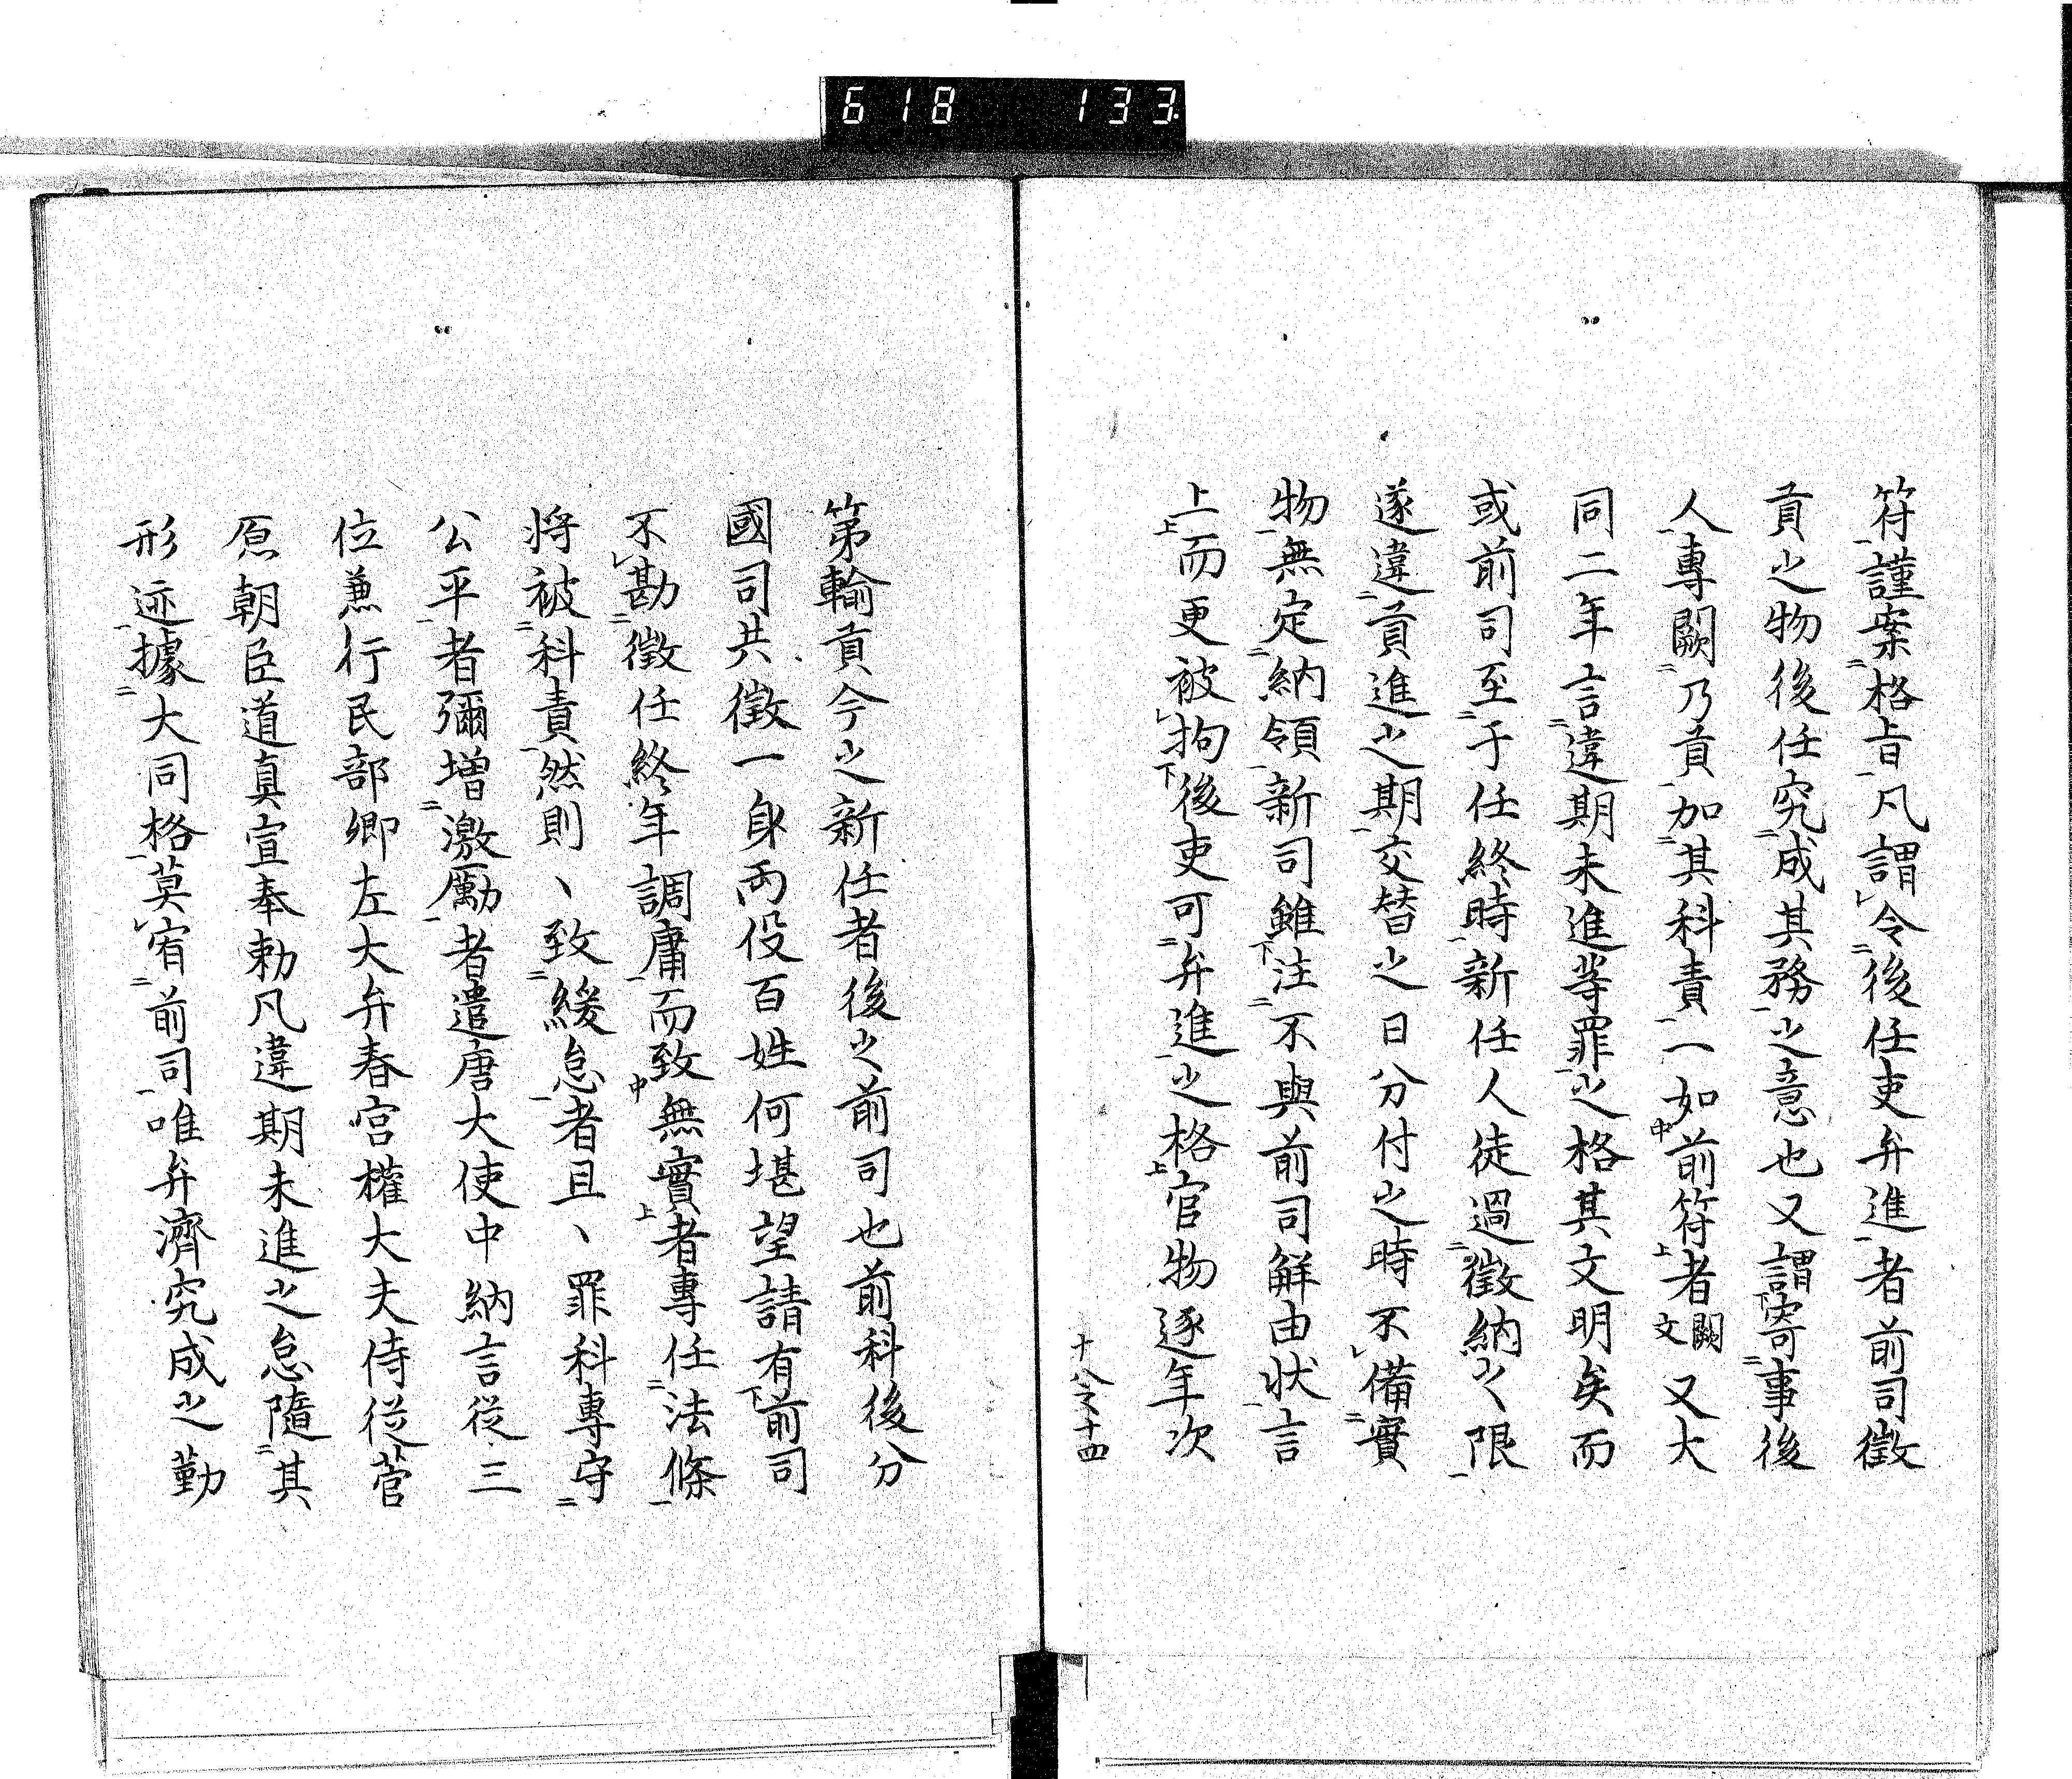 618 133
符謹案格旨凡謂令後任吏弁進者前司徵
貢之物後任究成其務之意也又謂寄事後
人專闕乃貢加其科責一如前符者闕文又大
同二年言違期未進等罪之格其文明矣而
或前司至于任終時新任人徒過徵納之限
遂違貢進之期交替之日分付之時不備實
物無定納領新司雖注不與前司解由状言
上而更被拘後吏可弁進之格官物逐年次
十八之十四
第輸貢今之新任者後之前司也前科後分
國司共徵一身両役百姓何堪望請有前司
不勘徵任終年調庸而致無實者專任法條
将被科責然則丶致緩怠者且丶罪科專守
公平者彌増激勵者遣唐大使中納言従三
位兼行民部卿左大弁春宮權大夫侍従菅
原朝臣道真宣奉勅凡違期未進之怠隨其
形迹據大同格莫宥前司唯弁濟究成之勤